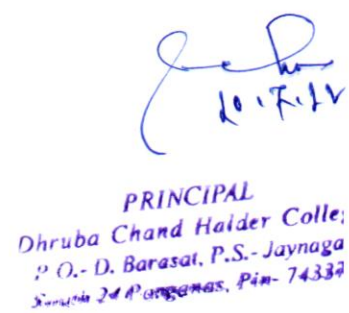 20.7.22
PRINCIPAL
Dhruba Chand Halder Colle
P.O.- D. Barasat, P.S.- Jaynaga
South 24 Parganas, Pin- 74333